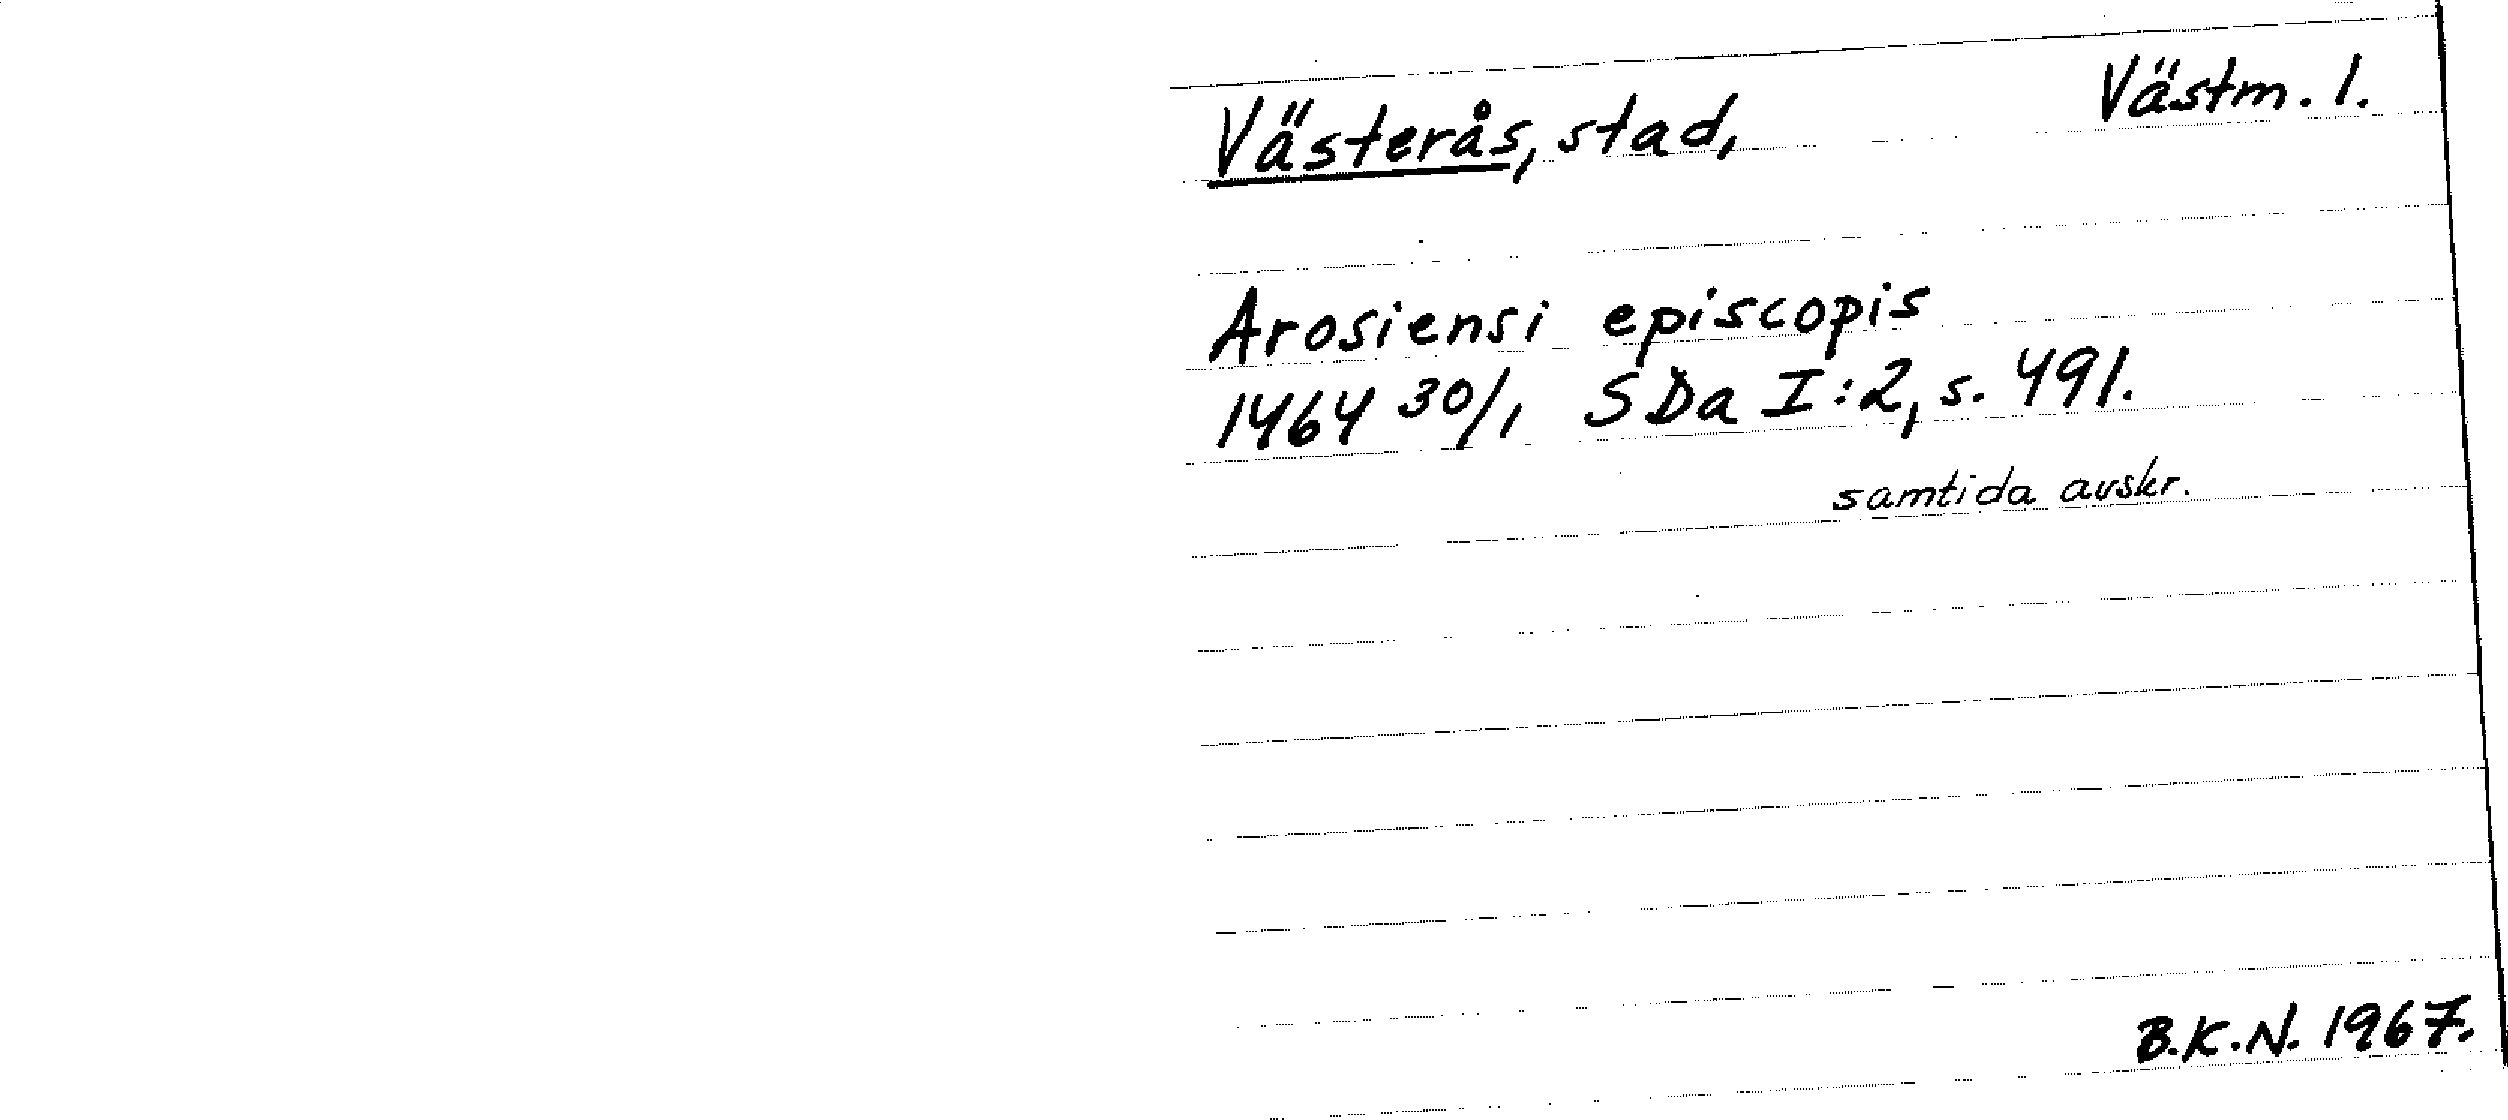 Västm. 1.
Västerås, stad,
Arosiensi episcopis
1464 30/1 SDa I:2, s. 491.
samtida avskr.
B.K.N. 1967.